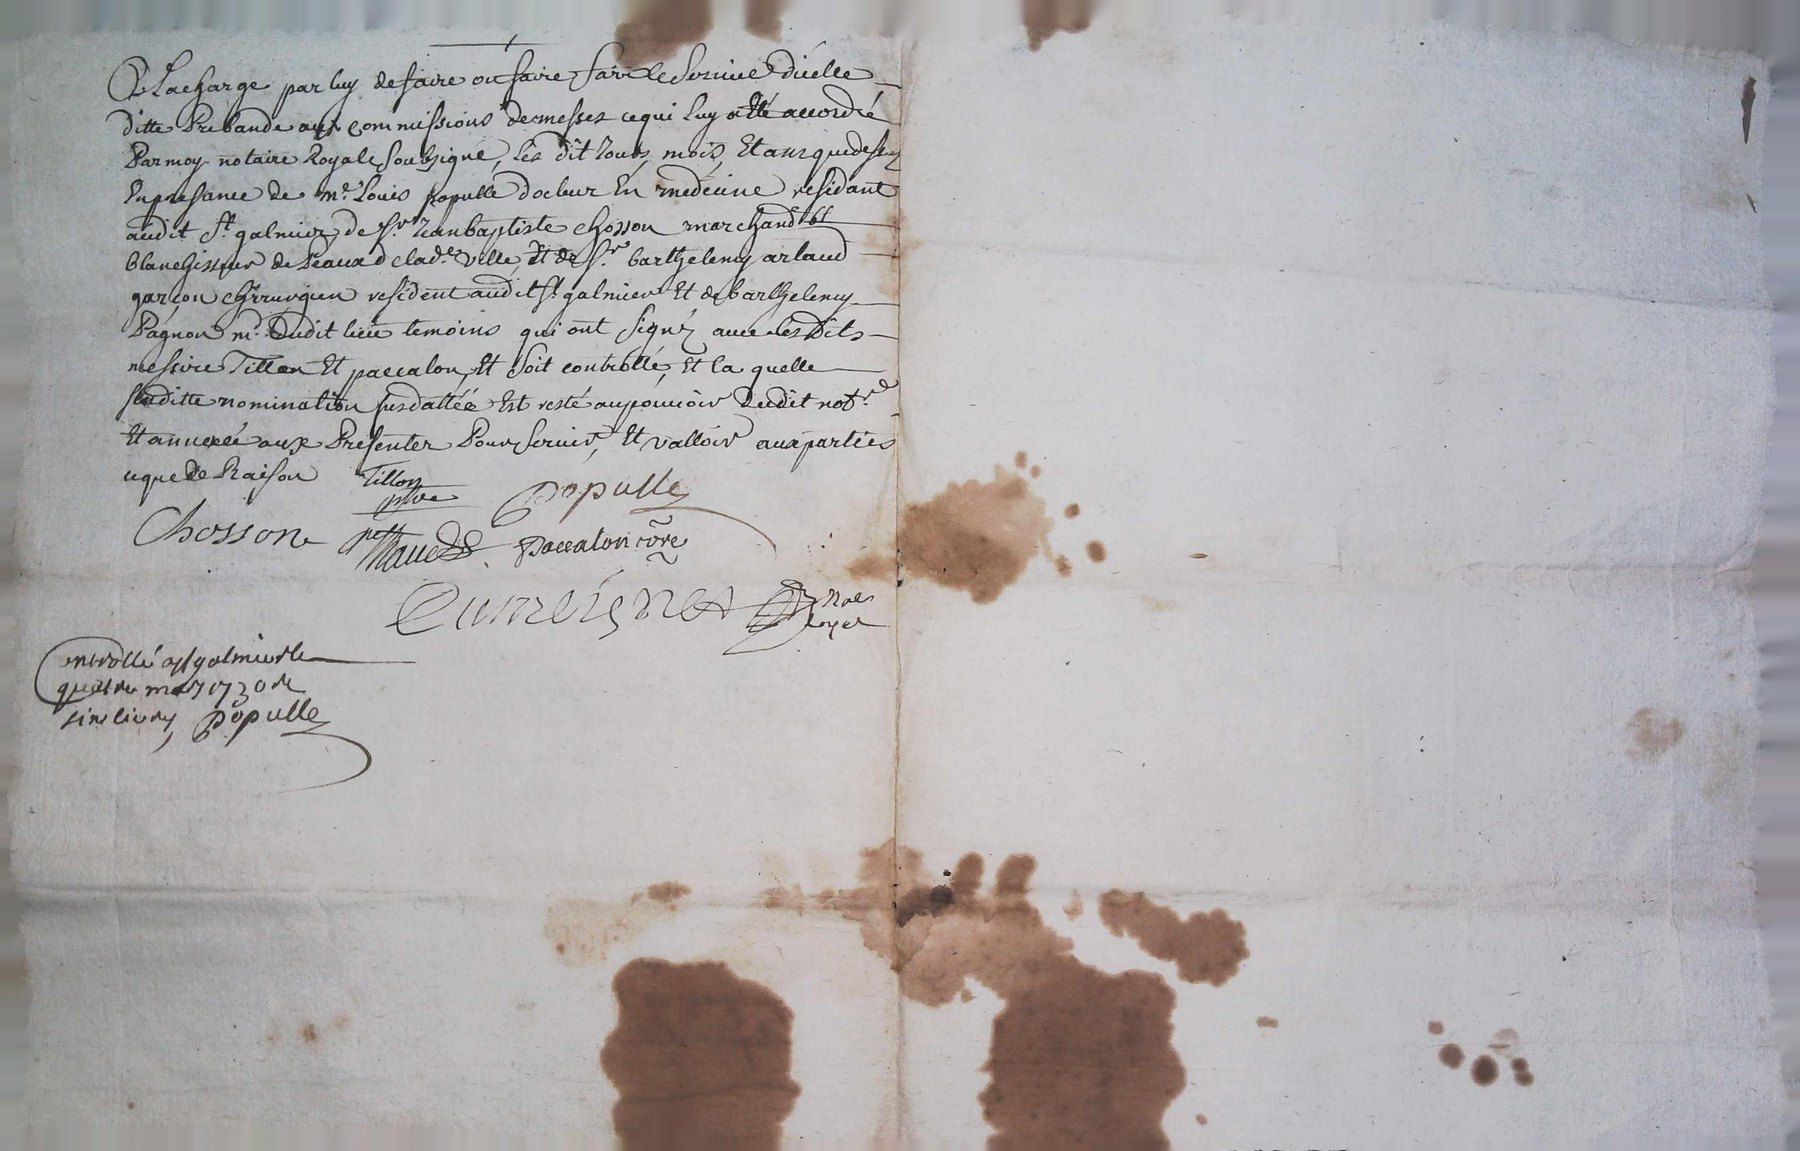 A La charge par luy de faire ou faire faire le Service d'icelle
ditte Prebande aux commissions de messes ce qui luy a été accordé
Par moy notaire Royale Soubsigné, les dit Jours, mois, Et an que dessus
En presance de mr. Louis populle docteur En medecine residant
audit St. galmier, de Sr. Jean baptiste chosson marchand
blanchisseur de Peaux de lad. ville, Et de Sr. barthelemy arlaud
garcon chirurgien resident audit St. galmier Et de barthelemy
Pagnon md. dudit lieu temoins qui ont Signé avec les dits
messire Tillon Et paccalon, Et Soit controllé, Et la quelle
susditte nomination susdattée Est resté au pouvoir dudit notre.
Et annexée aux Presentes Pour Servir, Et valloir aux parties
ce que de Raison Tillon
ptre Populle
Chosson paccalon
Nore
Royal
Controllé a St galmier le
quatre may 1730 Rx
six livres Populle